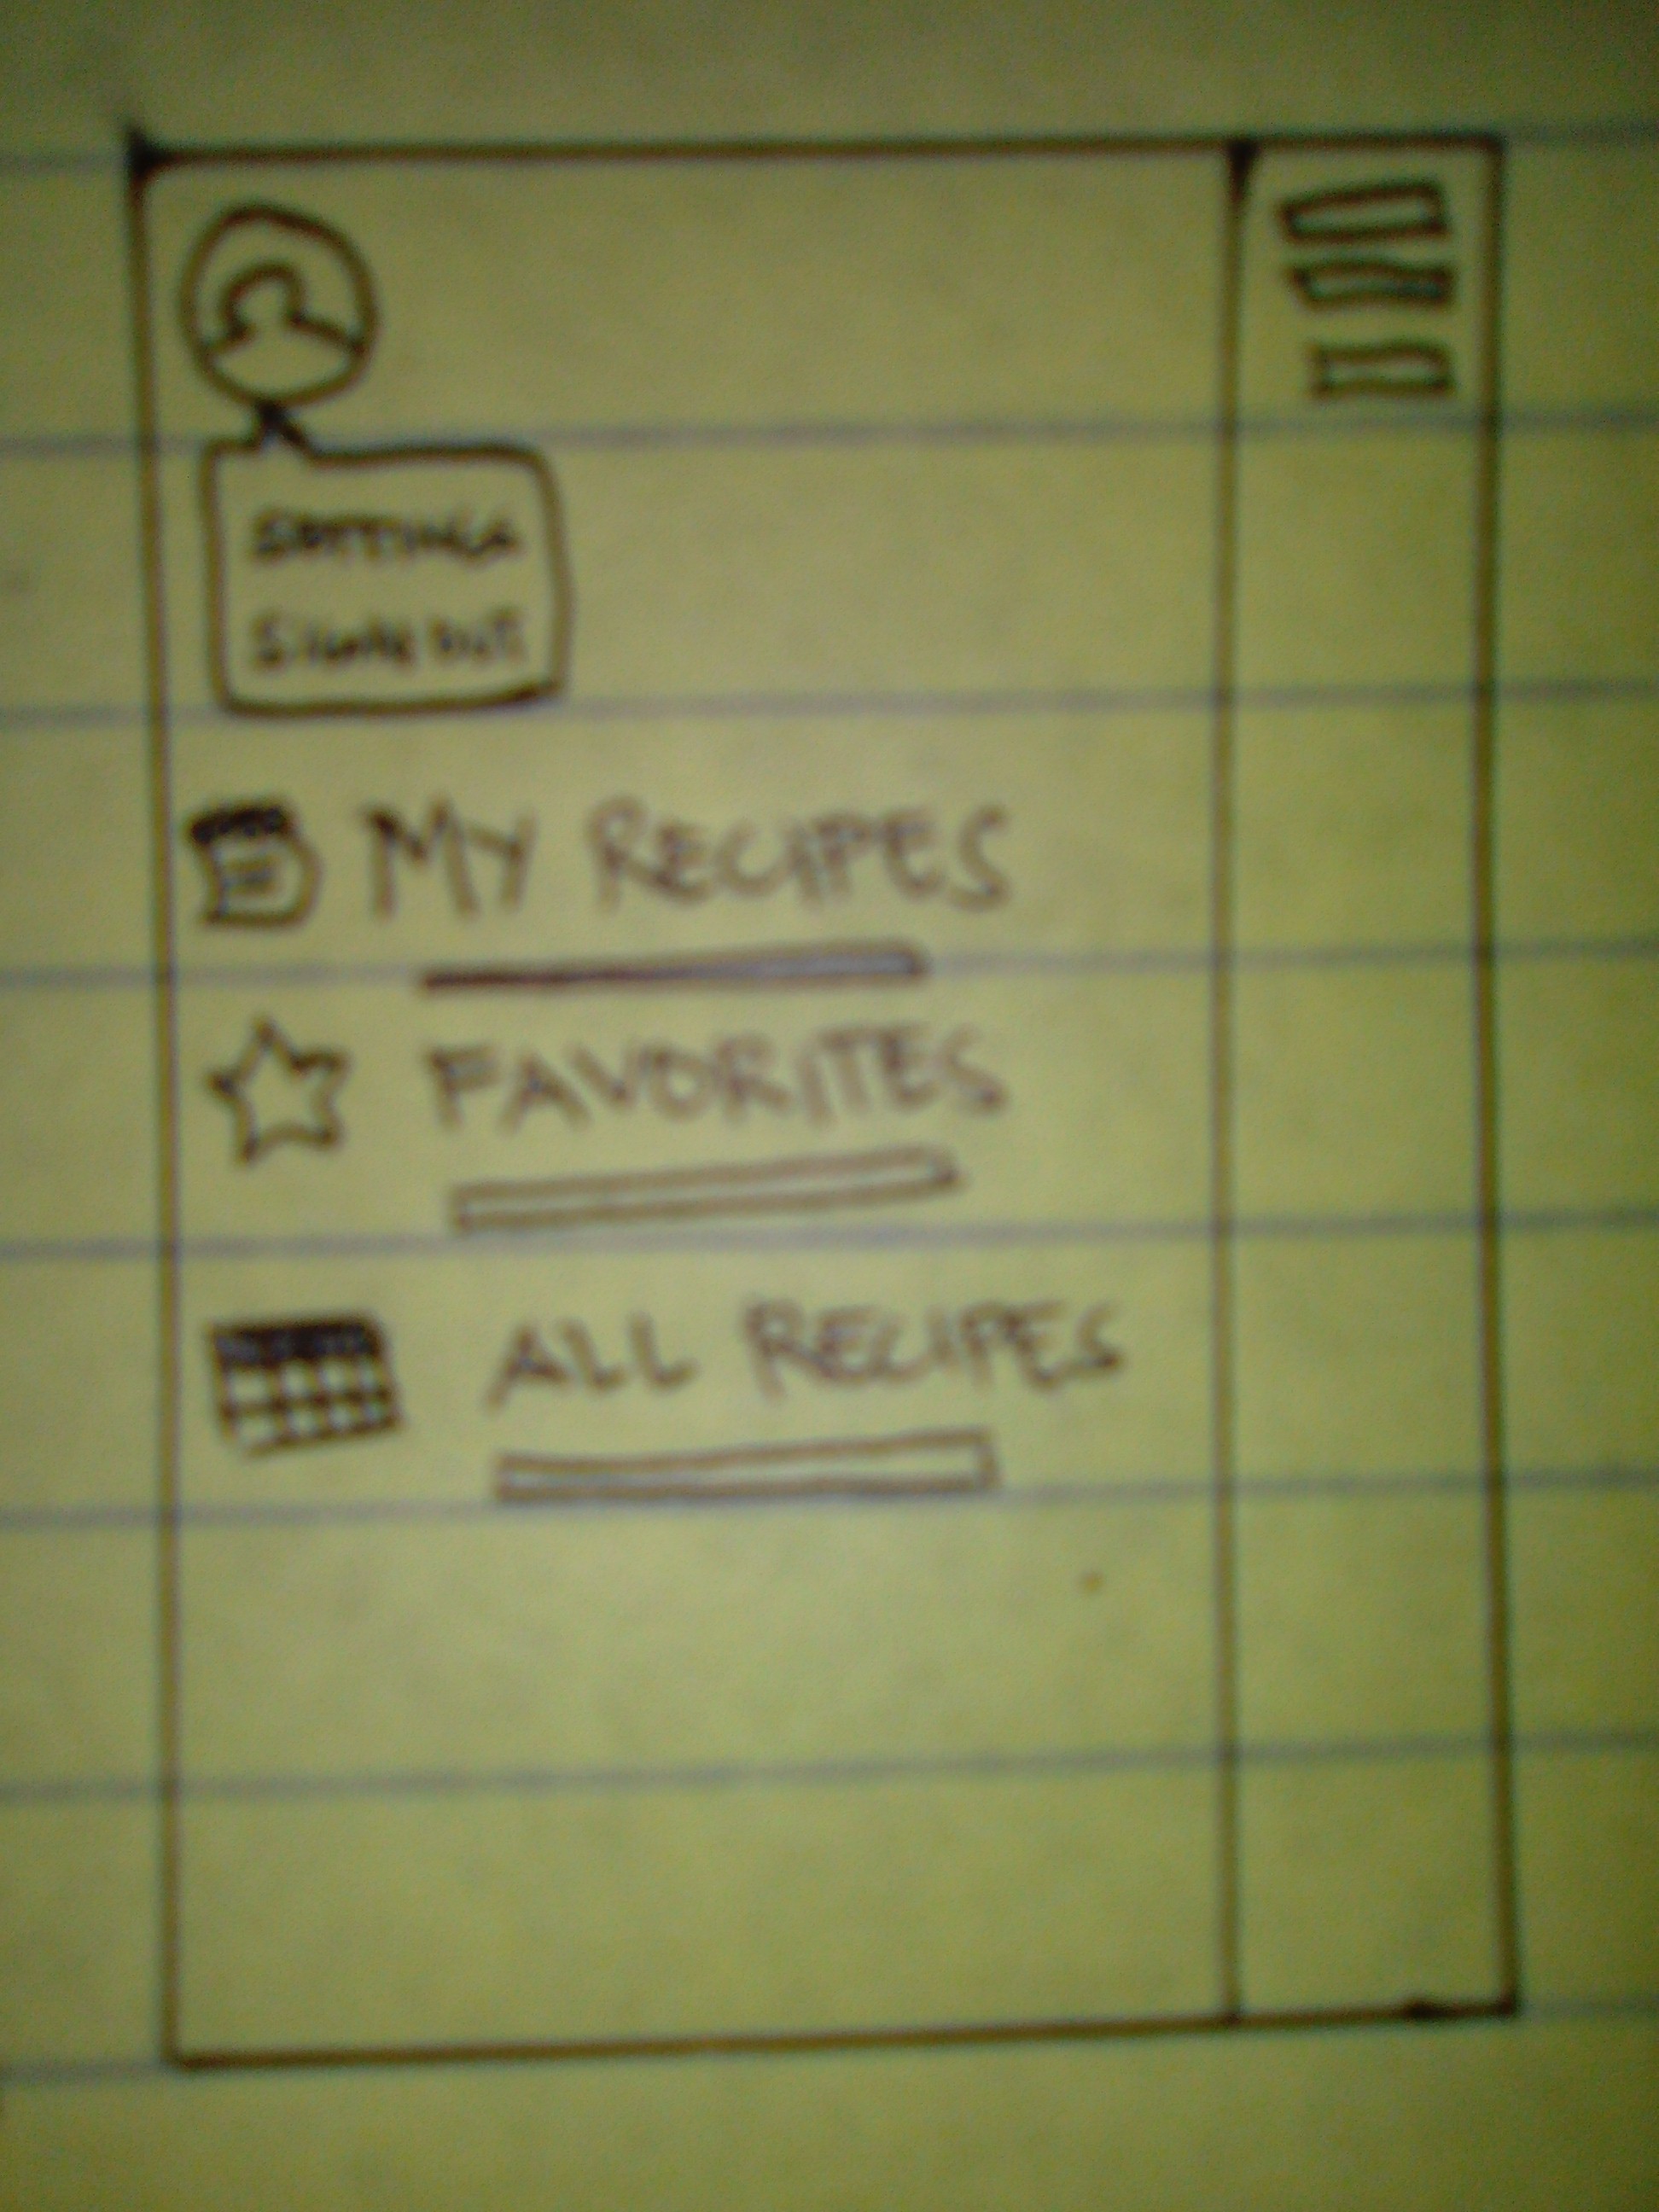 SETTINGS
SIGN OUT
MY RECIPES
FAVORITES
ALL RECIPES